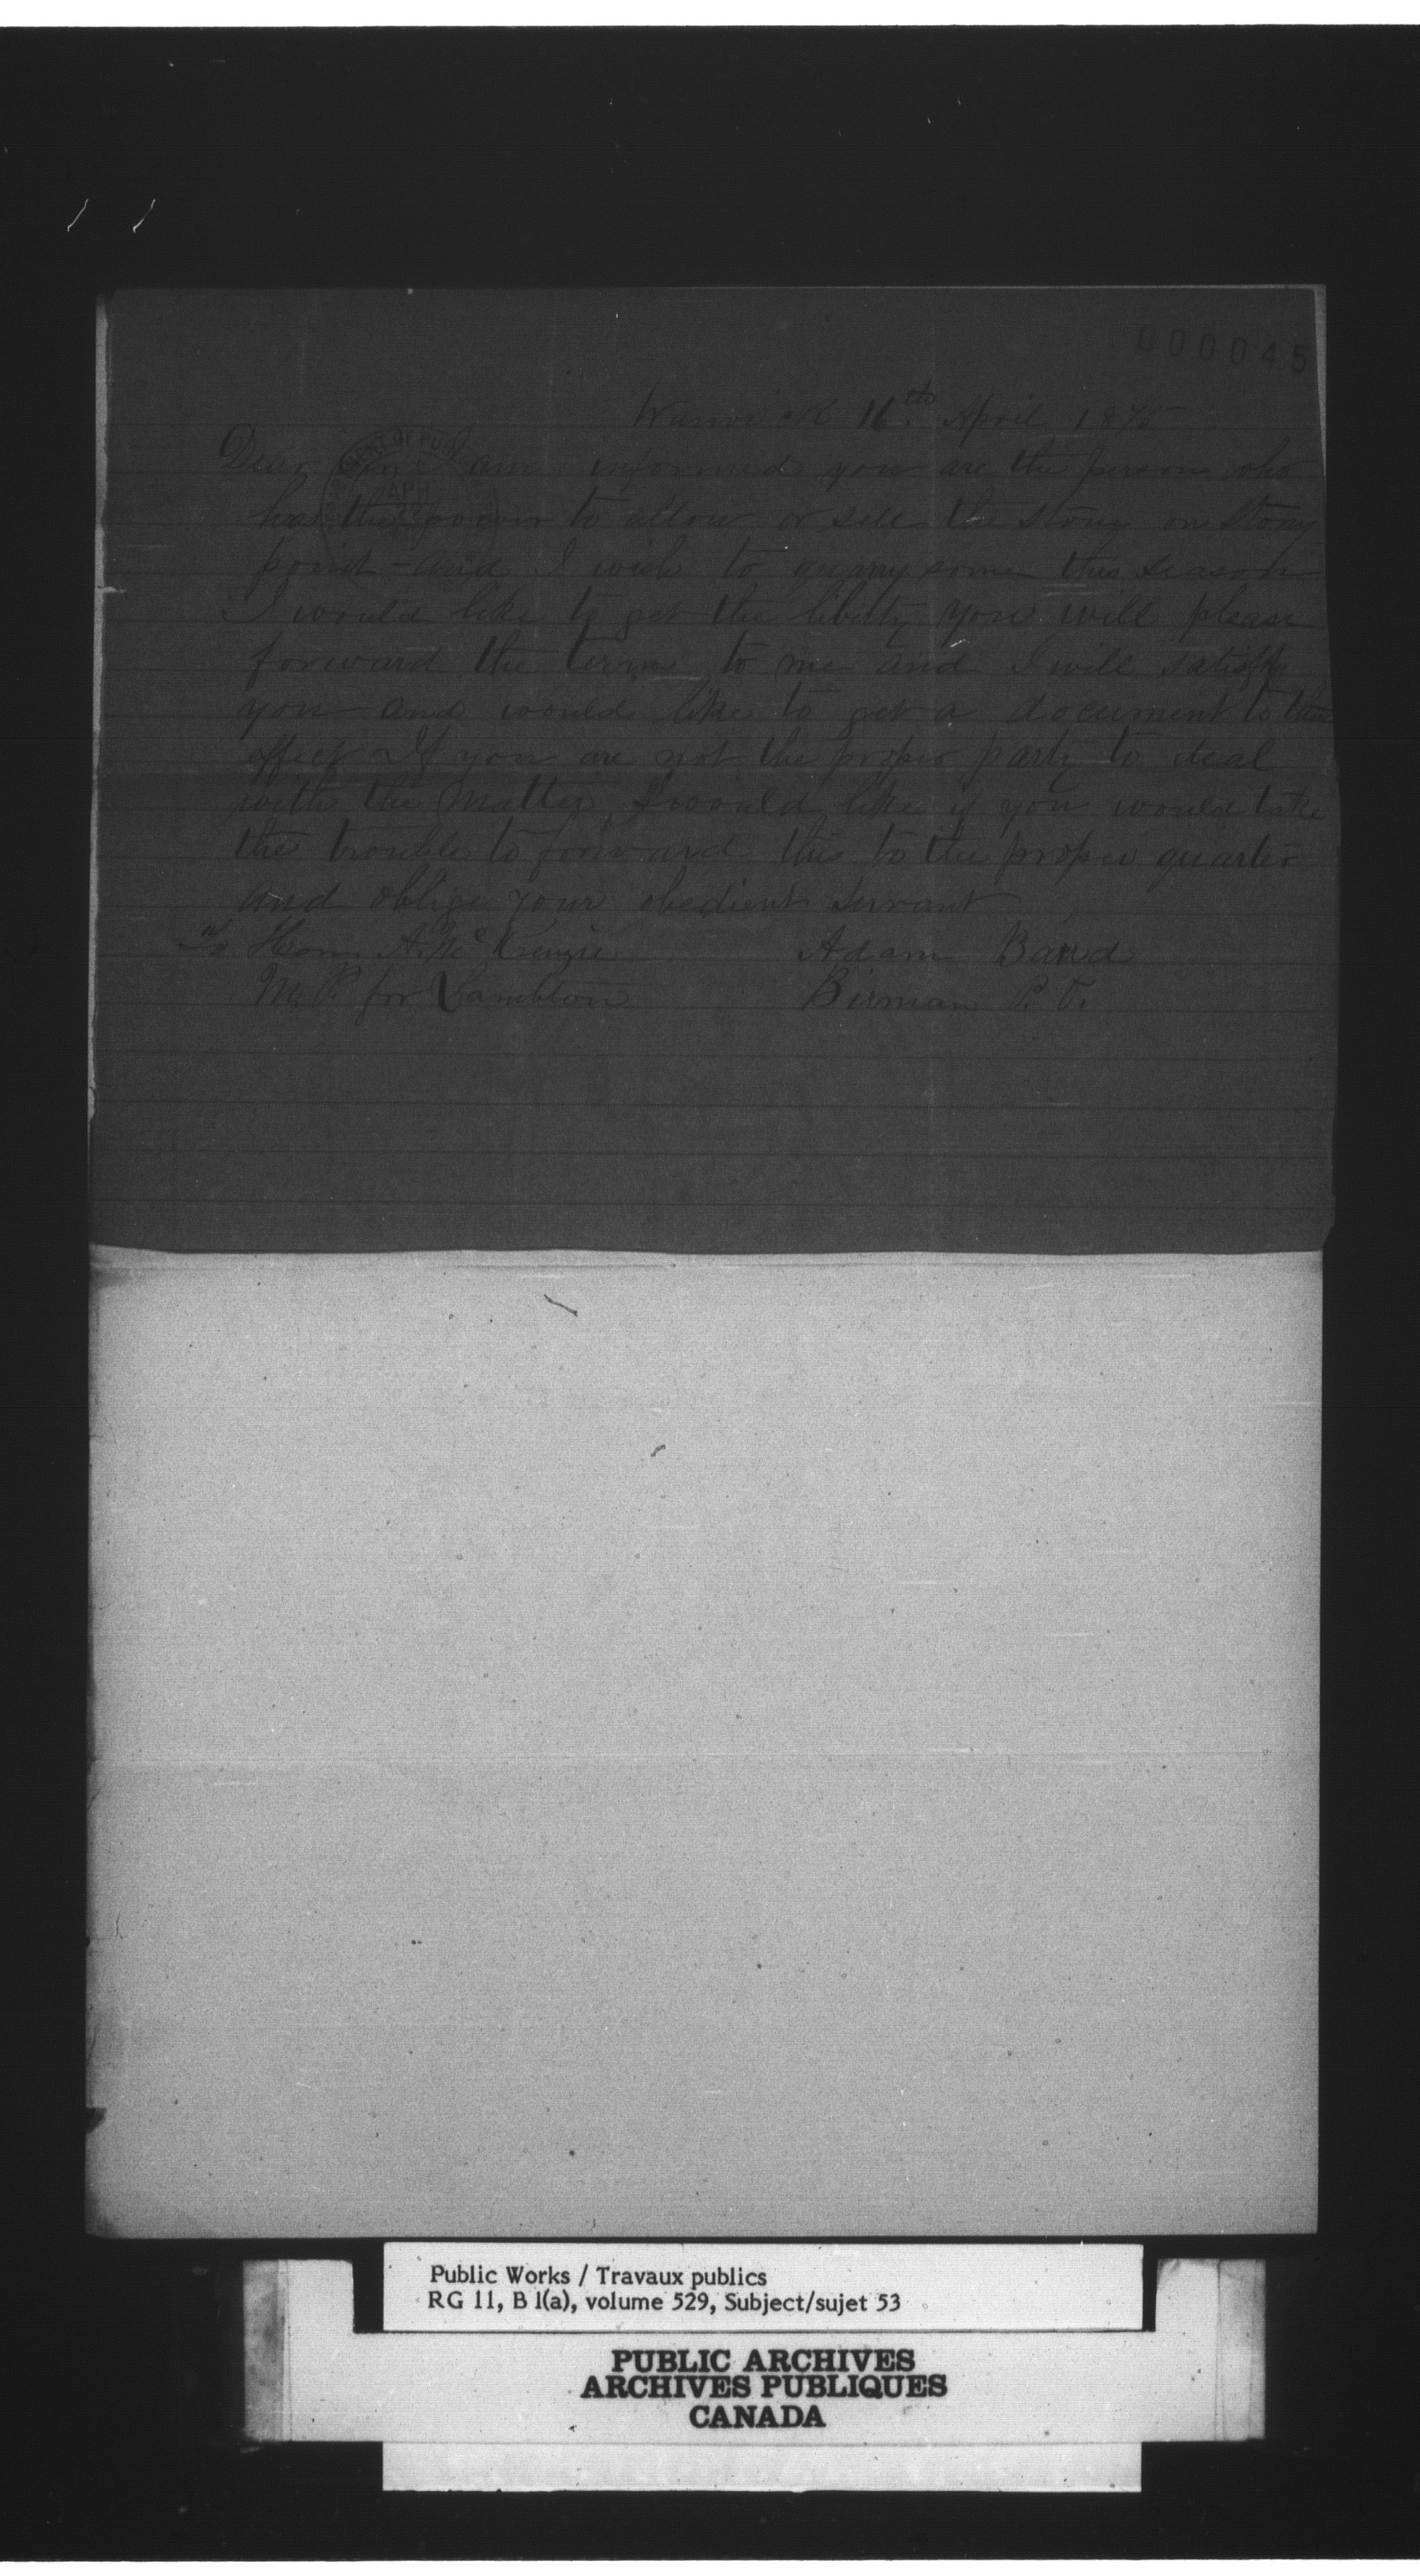 000045
Warwick 16th April 1875
Dear Sir I am informed you are the person who
has the power to allow or sell the stone on Stony
point - and I wish to quarry some this season
I would like to get the liberty you will please
forward the terms to me and I will satisfy
you and would like to get a document to this
effect If you are not the proper party to deal
with the matter I would like if you would take
the trouble to forward this to the proper quarter
and oblige your obedient servant
To Hon. A. McKenzie Adam Baird
M. P. for Lambton Birnam P. O.
APR
Public Works / Travaux publics
RG 11, B 1(a), volume 529, Subject/sujet 53
PUBLIC ARCHIVES
ARCHIVES PUBLIQUES
CANADA